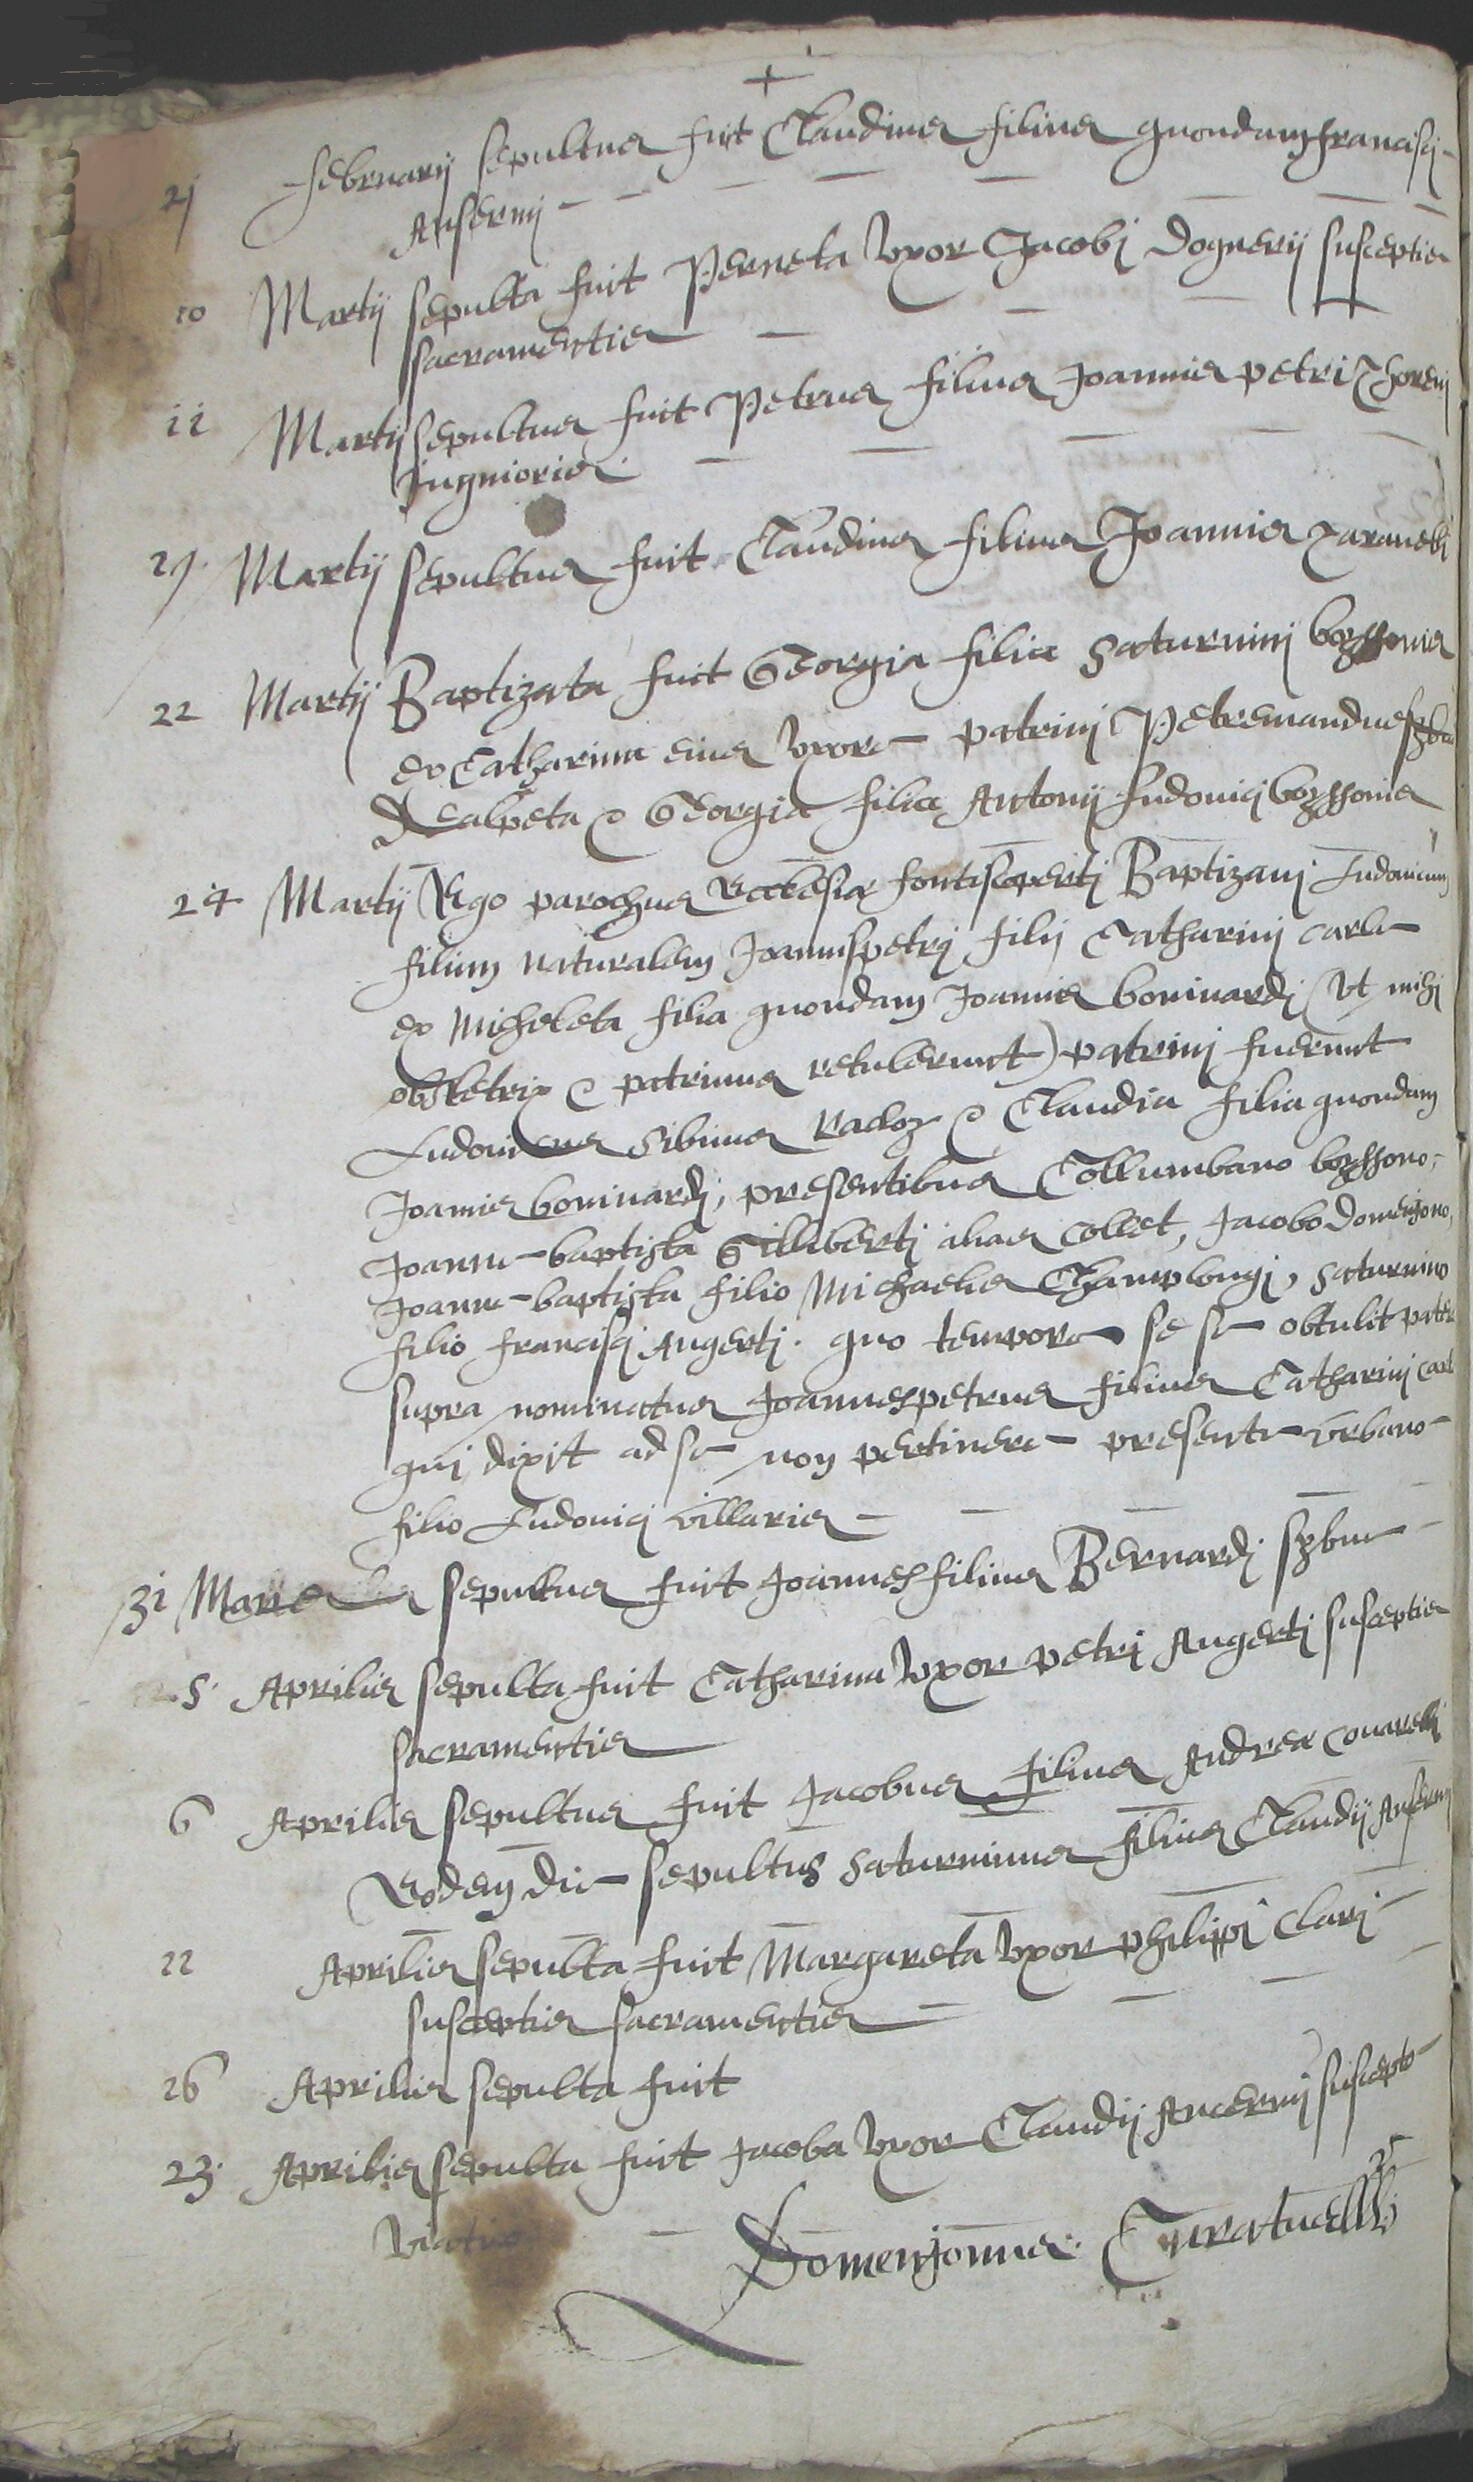 +
21 februarij sepultus fuit Claudius filius quondam francisci
Ansermi
10 Martij sepulta fuit Perneta Uxor Jacobi dognerij susceptis
sacramentis
11 Martij sepultus fuit Petrus filius Joannis petri
Jugnioris
Martij sepultus fuit Claudius filius Joannis
22 Martij Baptizata fuit Georgia filia Saturnini bozssonis
ex Catharina eius Uxore patrini Petremandus
Realpeta & Georgia filia Antonij Ludovici bozssonis
24 Martij Ego parochus Ecclesiæ fontiscoperti Baptizavi Ludovicum
filium naturalem Joannispetri filij Catharini carle
ex Micheleta filia quondam Joannis bonivardi (Ut mihi
obstetrix & patrinus retulerunt) patrini fuerunt
Ludovicus Sibinus & Claudia filia quondam
Joannis bonivardi, presentibus Collumbano bozssono,
Joanne-baptista Gilliberti alias Collet, Jacobo domenjono,
Joanne-baptista filio Michaelis Champlongi, Saturnino
filio francisci Augerti. quo tempore se se obtulit pater
supra nominatus Joannespetrus filius Catharini carle
qui dixit ad se non pertinere presente Urbano
filio Ludovici villaris
31 sepultus fuit Joannes filius Bernardi
5. Aprilis sepulta fuit Catharina Uxor petri Augerti susceptis
sacramentis
6 Aprilis sepultus fuit Jacobus filius Andreæ Convarelli
Eodem die sepultus Saturninus filius Claudij Ansermi
22 Aprilis sepulta fuit Margareta Uxor philippi Clari
susceptis sacramentis
26 Aprilis sepulta fuit
23. Aprilis sepulta fuit Jacoba Uxor Claudij Ancermij suscepto
Viatico
Domenjonus Curatus